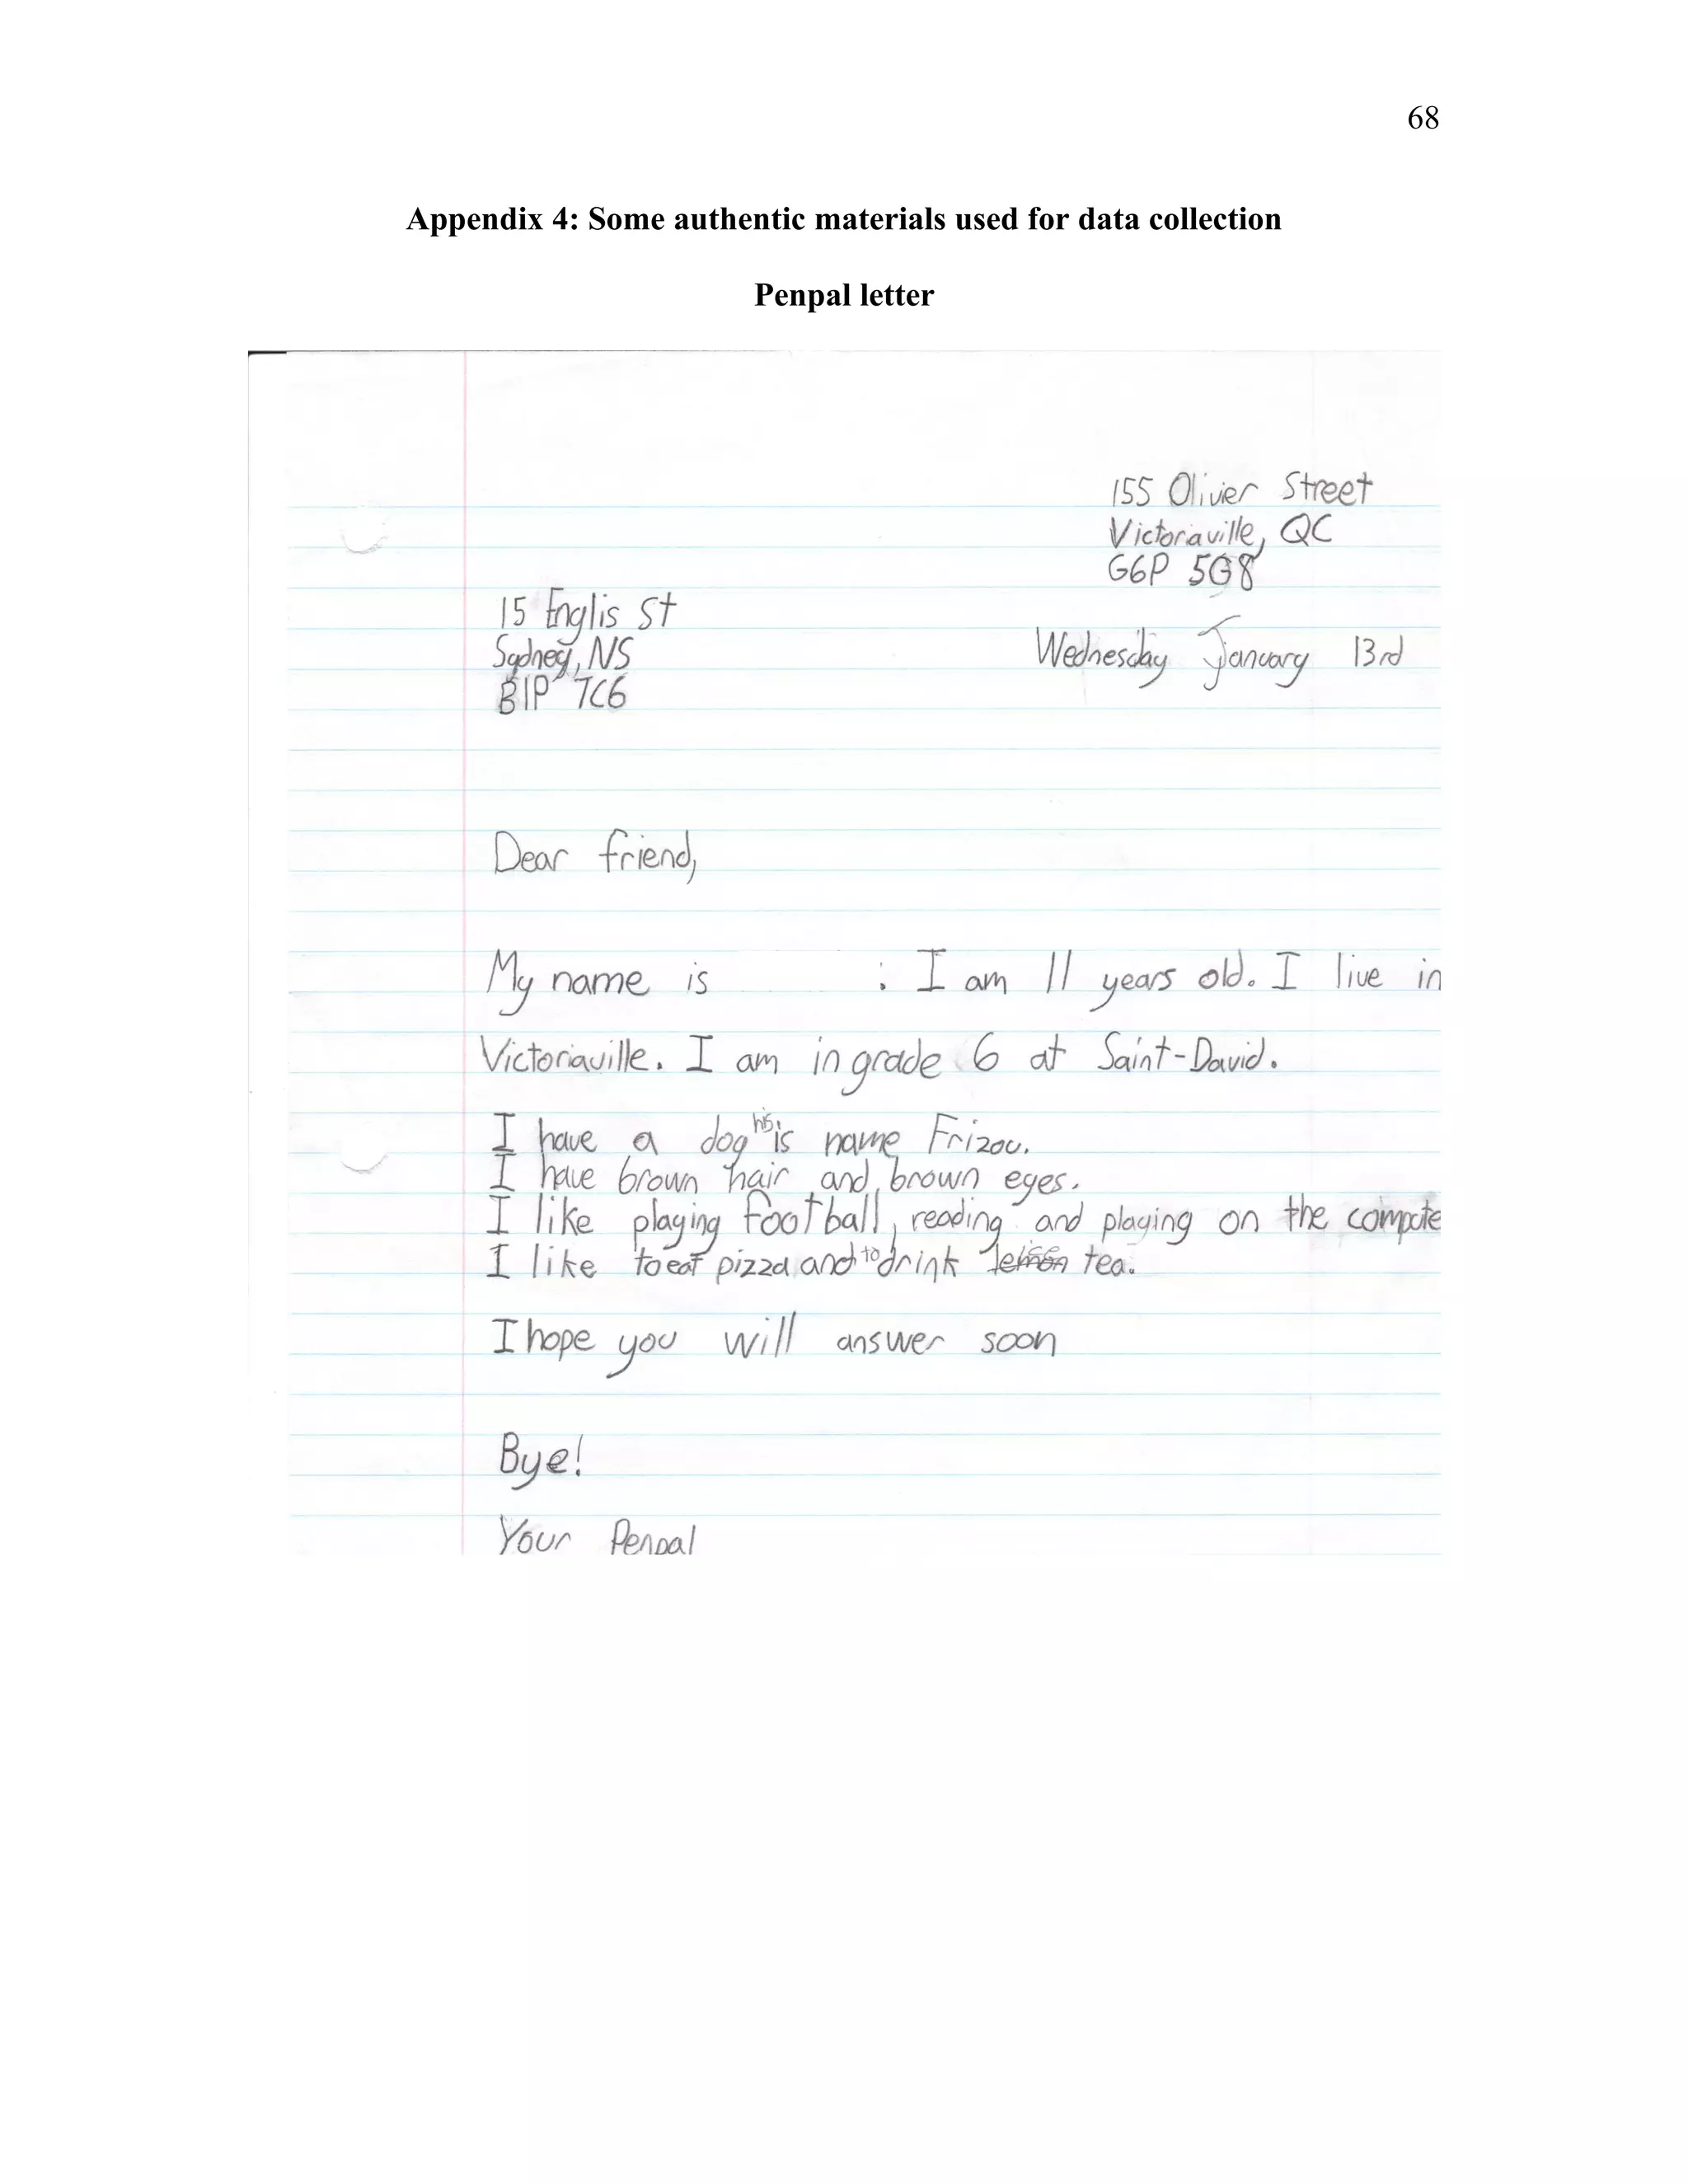 68
Appendix 4: Some authentic materials used for data collection
Penpal letter
155 Olivier Street
Victoriaville, QC
G6P 5G8
15 Englis St
Sydney, NS
B1P 7C6
Wednesday January 13rd
Dear friend,
My name is : I am 11 years old. I live in
Victoriaville. I am in grade 6 at Saint-David.
I have a dog his is name Frizou.
I have brown hair and brown eyes.
I like playing football, reading and playing on the compute
I like to eat pizza and to drink tea.
I hope you will answer soon
Bye!
Your Penpal